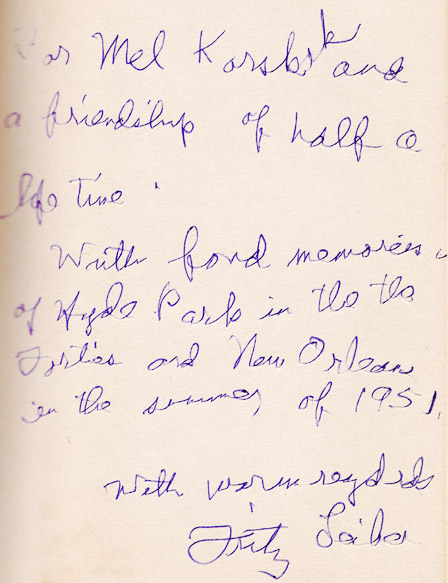 For Mel Korshak and
a friendship of half a
life time.
With fond memories
of Hyde Park in the the
Forties and New Orleans
in the summer of 1951.
With warm regards
Fritz Leiber